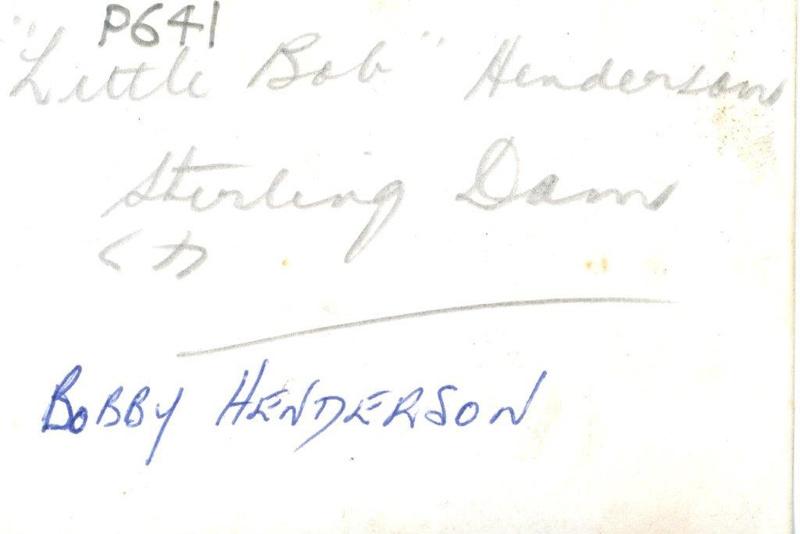 P641
"Little Bob" Henderson
Sterling Dam
BOBBY HENDERSON